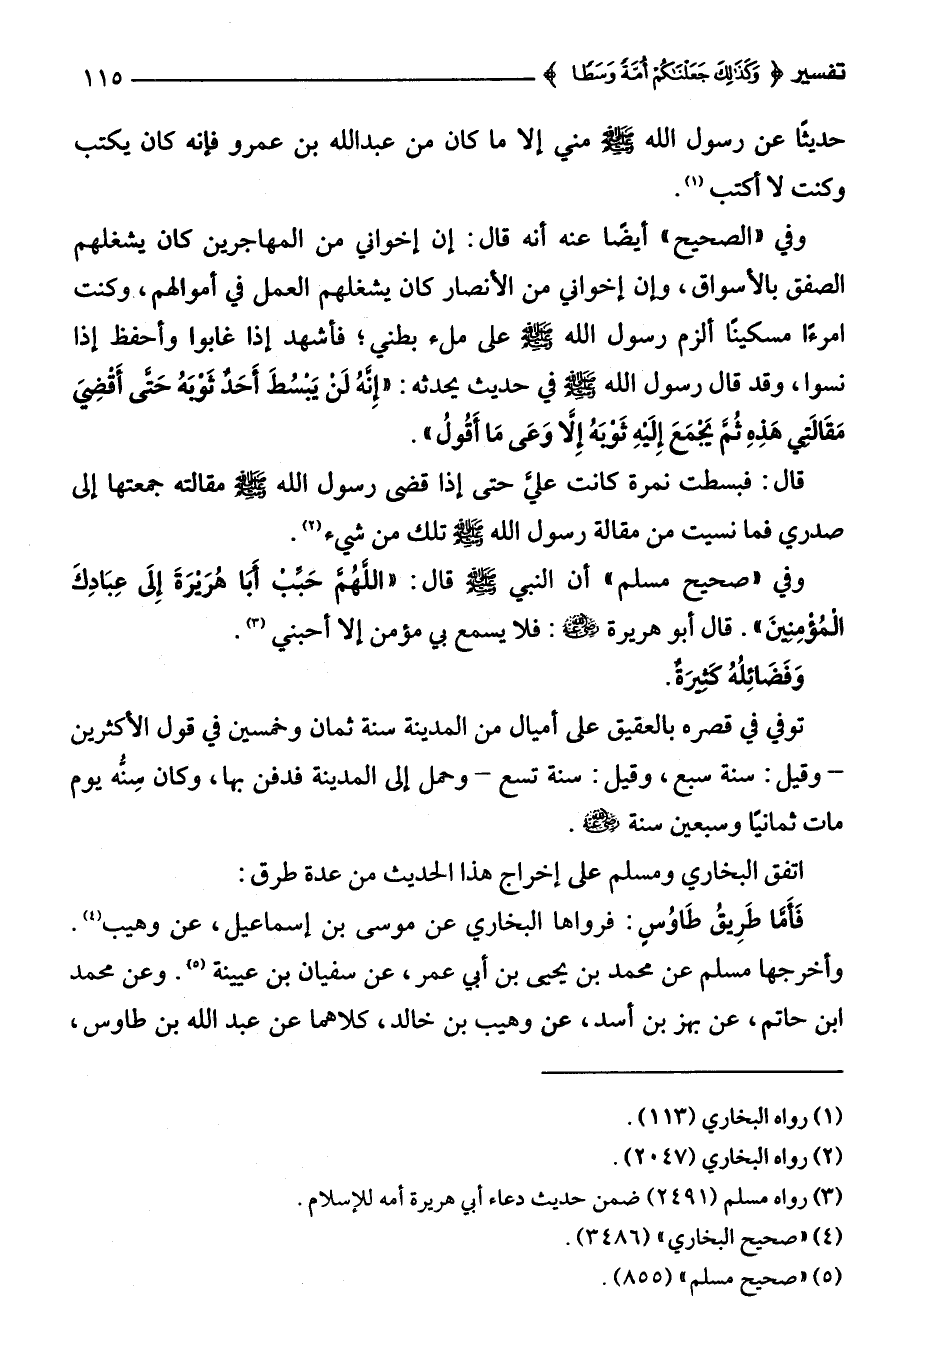 تفسير ﴿ وَكَذَٰلِكَ جَعَلْنَاكُمْ أُمَّةً وَسَطًا ﴾ ١١٥
حديثًا عن رسول الله ﷺ مني إلا ما كان من عبدالله بن عمرو فإنه كان يكتب
وكنت لا أكتب (١).
وفي «الصحيح» أيضًا عنه أنه قال: إن إخواني من المهاجرين كان يشغلهم
الصفق بالأسواق، وإن إخواني من الأنصار كان يشغلهم العمل في أموالهم، وكنت
امرءًا مسكينًا ألزم رسول الله ﷺ على ملء بطني؛ فأشهد إذا غابوا وأحفظ إذا
نسوا، وقد قال رسول الله ﷺ في حديث يحدثه: «إِنَّهُ لَنْ يَبْسُطَ أَحَدٌ ثَوْبَهُ حَتَّى أَقْضِيَ
مَقَالَتِي هَذِهِ ثُمَّ يَجْمَعَ إِلَيْهِ ثَوْبَهُ إِلَّا وَعَى مَا أَقُولُ».
قال: فبسطت نمرة كانت عليَّ حتى إذا قضى رسول الله ﷺ مقالته جمعتها إلى
صدري فما نسيت من مقالة رسول الله ﷺ تلك من شيء(٢).
وفي «صحيح مسلم» أن النبي ﷺ قال: «اللَّهُمَّ حَبِّبْ أَبَا هُرَيْرَةَ إِلَى عِبَادِكَ
الْمُؤْمِنِينَ». قال أبو هريرة رضي الله عنه: فلا يسمع بي مؤمن إلا أحبني (٣).
وَفَضَائِلُهُ كَثِيرَةٌ.
توفي في قصره بالعقيق على أميال من المدينة سنة ثمان وخمسين في قول الأكثرين
– وقيل: سنة سبع، وقيل: سنة تسع – وحمل إلى المدينة فدفن بها، وكان سِنُّه يوم
مات ثمانيًا وسبعين سنة رضي الله عنه.
اتفق البخاري ومسلم على إخراج هذا الحديث من عدة طرق:
فَأَمَّا طَرِيقُ طَاوُسٍ: فرواها البخاري عن موسى بن إسماعيل، عن وهيب(٤).
وأخرجها مسلم عن محمد بن يحيى بن أبي عمر، عن سفيان بن عيينة (٥). وعن محمد
ابن حاتم، عن بهز بن أسد، عن وهيب بن خالد، كلاهما عن عبد الله بن طاوس،
(١) رواه البخاري (١١٣).
(٢) رواه البخاري (٢٠٤٧).
(٣) رواه مسلم (٢٤٩١) ضمن حديث دعاء أبي هريرة أمه للإسلام.
(٤) «صحيح البخاري» (٣٤٨٦).
(٥) «صحيح مسلم» (٨٥٥).